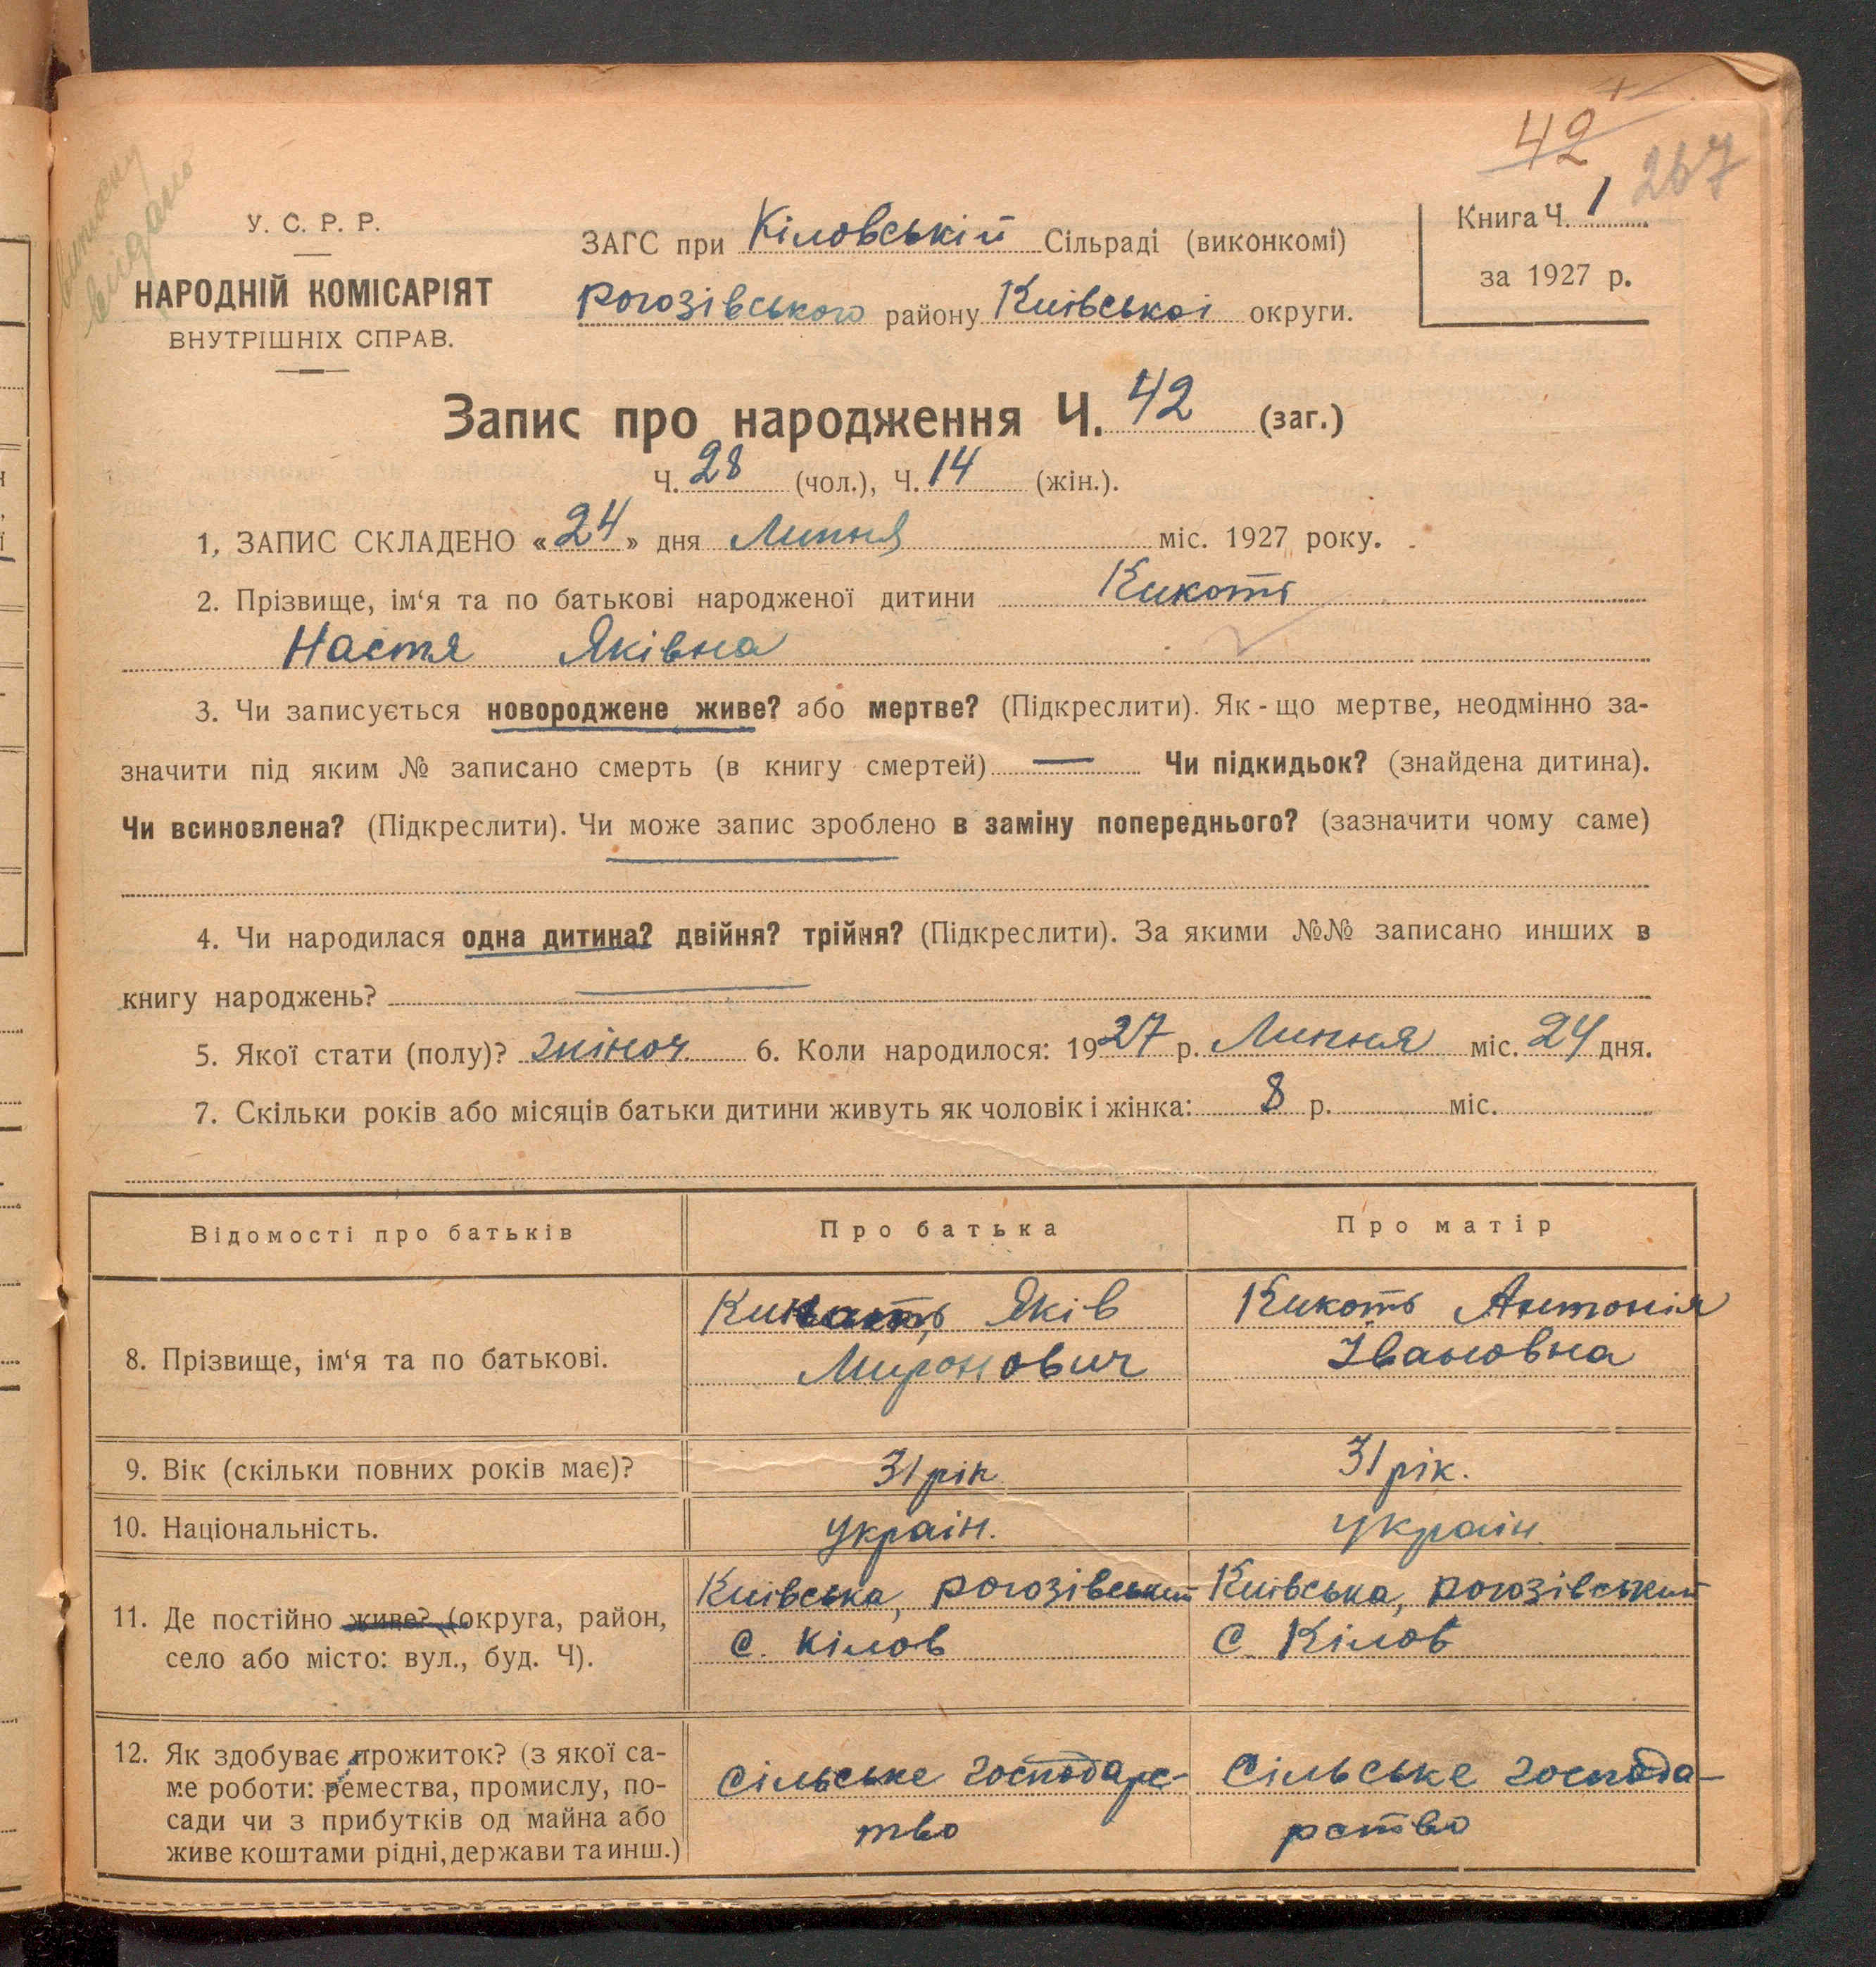 42
267
Виписку
видано
У. С. Р. Р.
НАРОДНІЙ КОМІСАРІЯТ
ВНУТРІШНІХ СПРАВ.
ЗАГС при Кіловській Сільраді (виконкомі)
Рогозівського району Київської округи.
Книга Ч. 1
за 1927 р.
Запис про народження Ч. 42 (заг.)
Ч. 28 (чол.), Ч. 14 (жін.).
1, ЗАПИС СКЛАДЕНО «24» дня Липня міс. 1927 року.
2. Прізвище, ім‘я та по батькові народженої дитини Кикоть
Настя Яківна
3. Чи записується новороджене живе? або мертве? (Підкреслити). Як-що мертве, неодмінно за-
значити під яким № записано смерть (в книгу смертей) — Чи підкидьок? (знайдена дитина).
Чи всиновлена? (Підкреслити). Чи може запис зроблено в заміну попереднього? (зазначити чому саме)
4. Чи народилася одна дитина? двійня? трійня? (Підкреслити). За якими №№ записано инших в
книгу народжень?
5. Якої стати (полу)? жіноч 6. Коли народилося: 1927 р. Липня міс. 24 дня.
7. Скільки років або місяців батьки дитини живуть як чоловік і жінка: 8 р. міс.
Відомості про батьків Про батька Про матір
8. Прізвище, ім‘я та по батькові.
Кикоть Яків
Миронович
Кикоть Антонія
Івановна
9. Вік (скільки повних років має)? 31 рік 31 рік.
10. Національність. Україн. україн
11. Де постійно живе? (округа, район,
село або місто: вул., буд. Ч).
Київська, Рогозівський
с. Кілов
Київська, Рогозівський
С. Кілов
12. Як здобуває прожиток? (з якої са-
ме роботи: ремества, промислу, по-
сади чи з прибутків од майна або
живе коштами рідні, держави та инш.)
Сільське господарс-
тво
Сільське господа-
рство